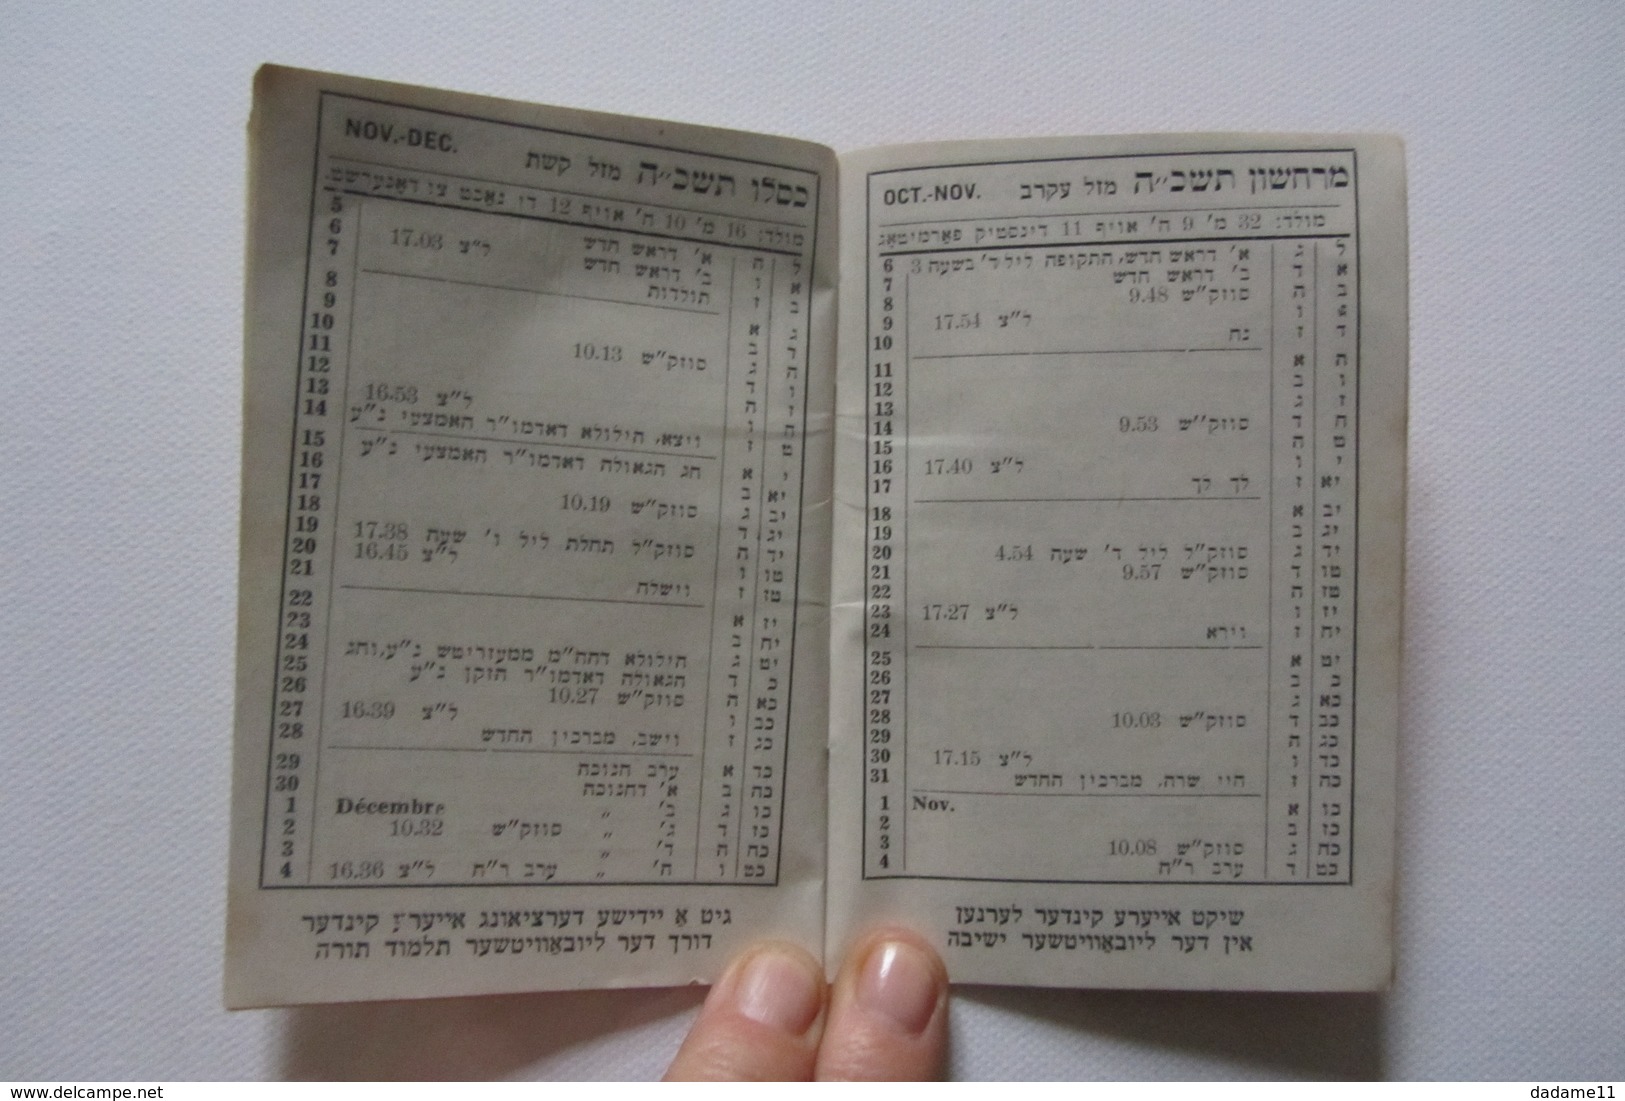 OCT.-NOV. מרחשון תשכ״ה מזל עקרב
מולד: 32 מ׳ 9 ח׳ אויף 11 דינסטיק פאַרמיטאָג
ל ג א׳ דראש חדש, התקופה ליל ד׳ בשעה 3 6
א ד ב׳ דראש חדש 7
ב ה סוזק״ש 9.48 8
ג ו ל״צ 17.54 9
ד ז נח 10
ה א 11
ו ב 12
ז ג 13
ח ד סוזק״ש 9.53 14
ט ה 15
י ו ל״צ 17.40 16
יא ז לך לך 17
יב א 18
יג ב 19
יד ג סוזק״ל ליל ד׳ שעה 4.54 20
טו ד סוזק״ש 9.57 21
טז ה 22
יז ו ל״צ 17.27 23
יח ז וירא 24
יט א 25
כ ב 26
כא ג 27
כב ד סוזק״ש 10.03 28
כג ה 29
כד ו ל״צ 17.15 30
כה ז חיי שרה, מברכין החדש 31
כו א Nov. 1
כז ב 2
כח ג סוזק״ש 10.08 3
כט ד ערב ר״ח 4
שיקט אייערע קינדער לערנען
אין דער ליובאַוויטשער ישיבה
NOV.-DEC. כסלו תשכ״ה מזל קשת
מולד: 16 מ׳ 10 ח׳ אויף 12 די נאַכט צו דאָנערשט.
ל ה א׳ דראש חדש 5
א ו ב׳ דראש חדש ל״צ 17.03 6
ב ז תולדות 7
ג א 8
ד ב 9
ה ג סוזק״ש 10.13 10
ו ד 11
ז ה 12
ח ו ל״צ 16.53 13
ט ז ויצא, הילולא דאדמו״ר האמצעי נ״ע 14
י א חג הגאולה דאדמו״ר האמצעי נ״ע 15
יא ב 16
יב ג סוזק״ש 10.19 17
יג ד 18
יד ה סוזק״ל תחלת ליל ו׳ שעה 17.38 19
טו ו ל״צ 16.45 20
טז ז וישלח 21
יז א 22
יח ב 23
יט ג הילולא דהה״מ ממעזריטש נ״ע, וחג 24
כ ד הגאולה דאדמו״ר הזקן נ״ע 25
כא ה סוזק״ש 10.27 26
כב ו ל״צ 16.39 27
כג ז וישב, מברכין החדש 28
כד א ערב חנוכה 29
כה ב א׳ דחנוכה 30
כו ג ב׳ ״ Décembre 1
כז ד ג׳ ״ סוזק״ש 10.32 2
כח ה ד׳ ״ 3
כט ו ה׳ ״ ערב ר״ח ל״צ 16.36 4
גיט אַ יידישע דערציאונג אייערע קינדער
דורך דער ליובאַוויטשער תלמוד תורה
https://www.delcampe.net
dadame11